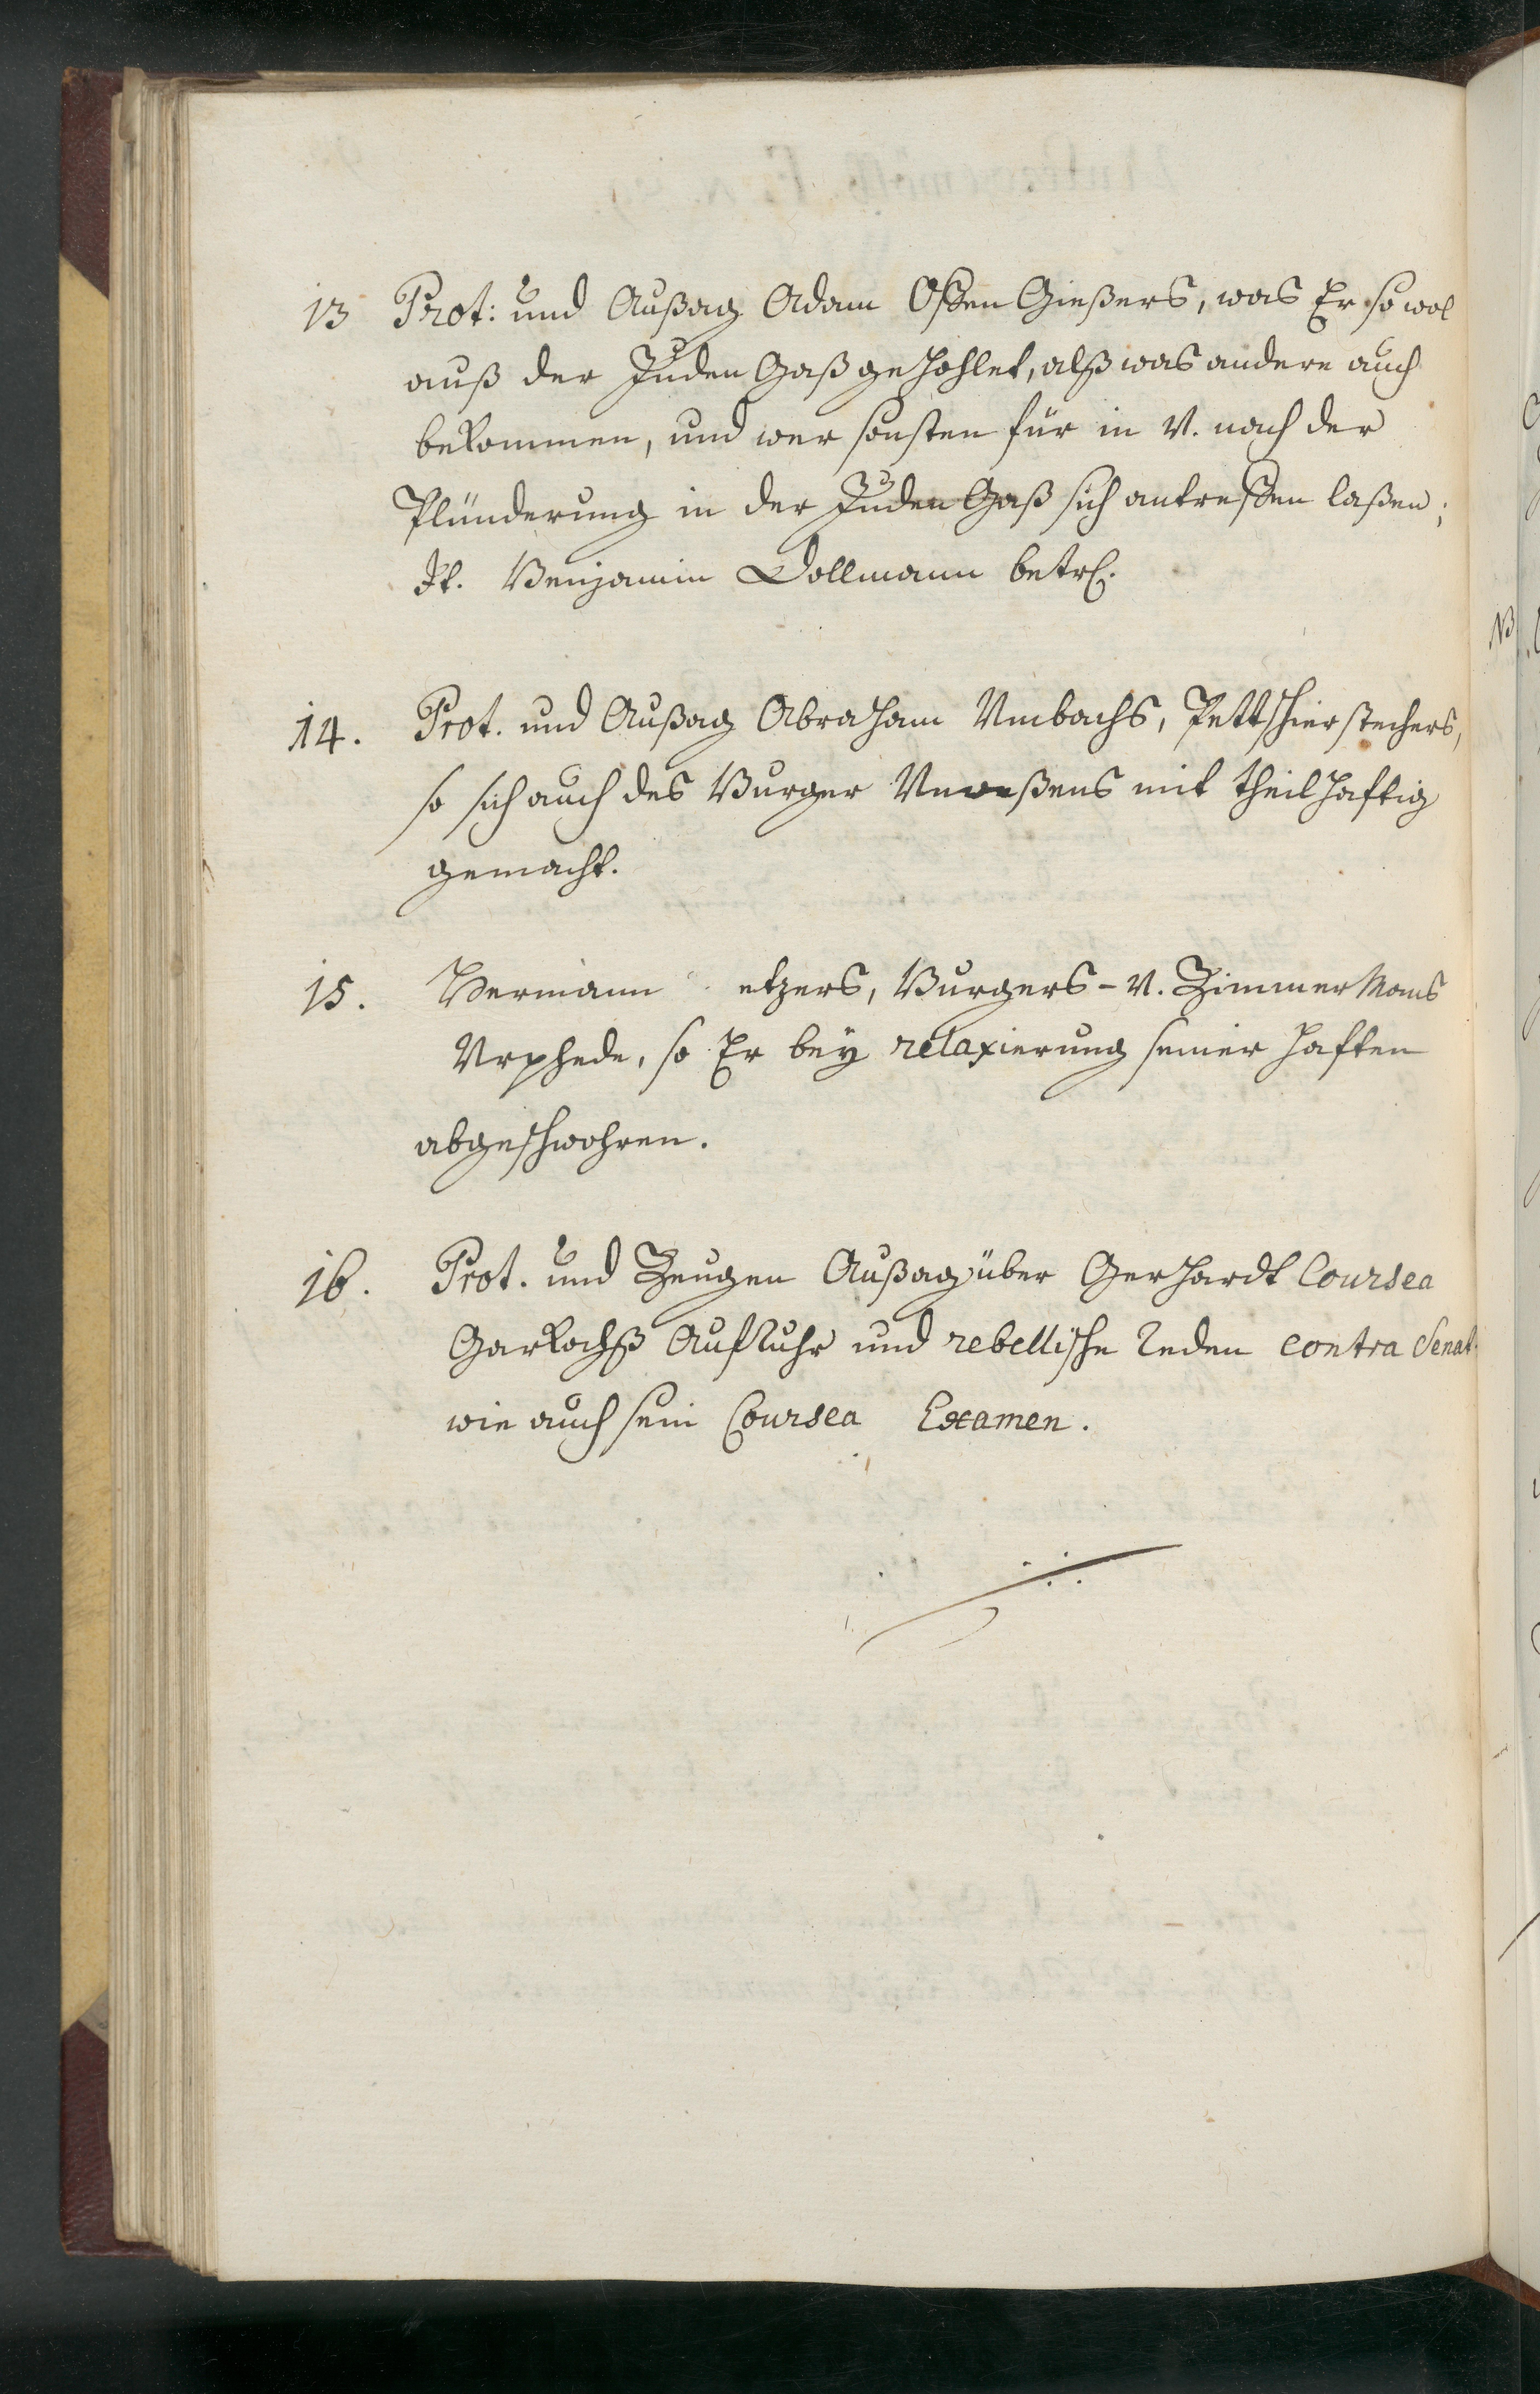 13 Prot: und Außag Adam Offen Gießers, was Er so wol
auß der Juden Gaß gehohlet, alß was andere auch
bekommen, und wer sonsten für in V. nach der
Plünderung in der Juden Gaß sich antreffen laßen;
It. Benjamin Dollmann betrf.
14. Prot. und Außag Abraham Umbachs, Pettschierstechers,
so sich auch des Burger Unweßens mit theilhafftig
gemacht.
15. Hermann etzers, Burgers- V. Zimmer Mans
Vrphede, so Er bey relaxierung seiner hafften
abgeschwohren.
16. Prot. und Zeugen Außag über Gerhardt Coursea
Garkochß Auffruhr und rebellische Reden contra Senat.
wie auch sein Coursea Examen.